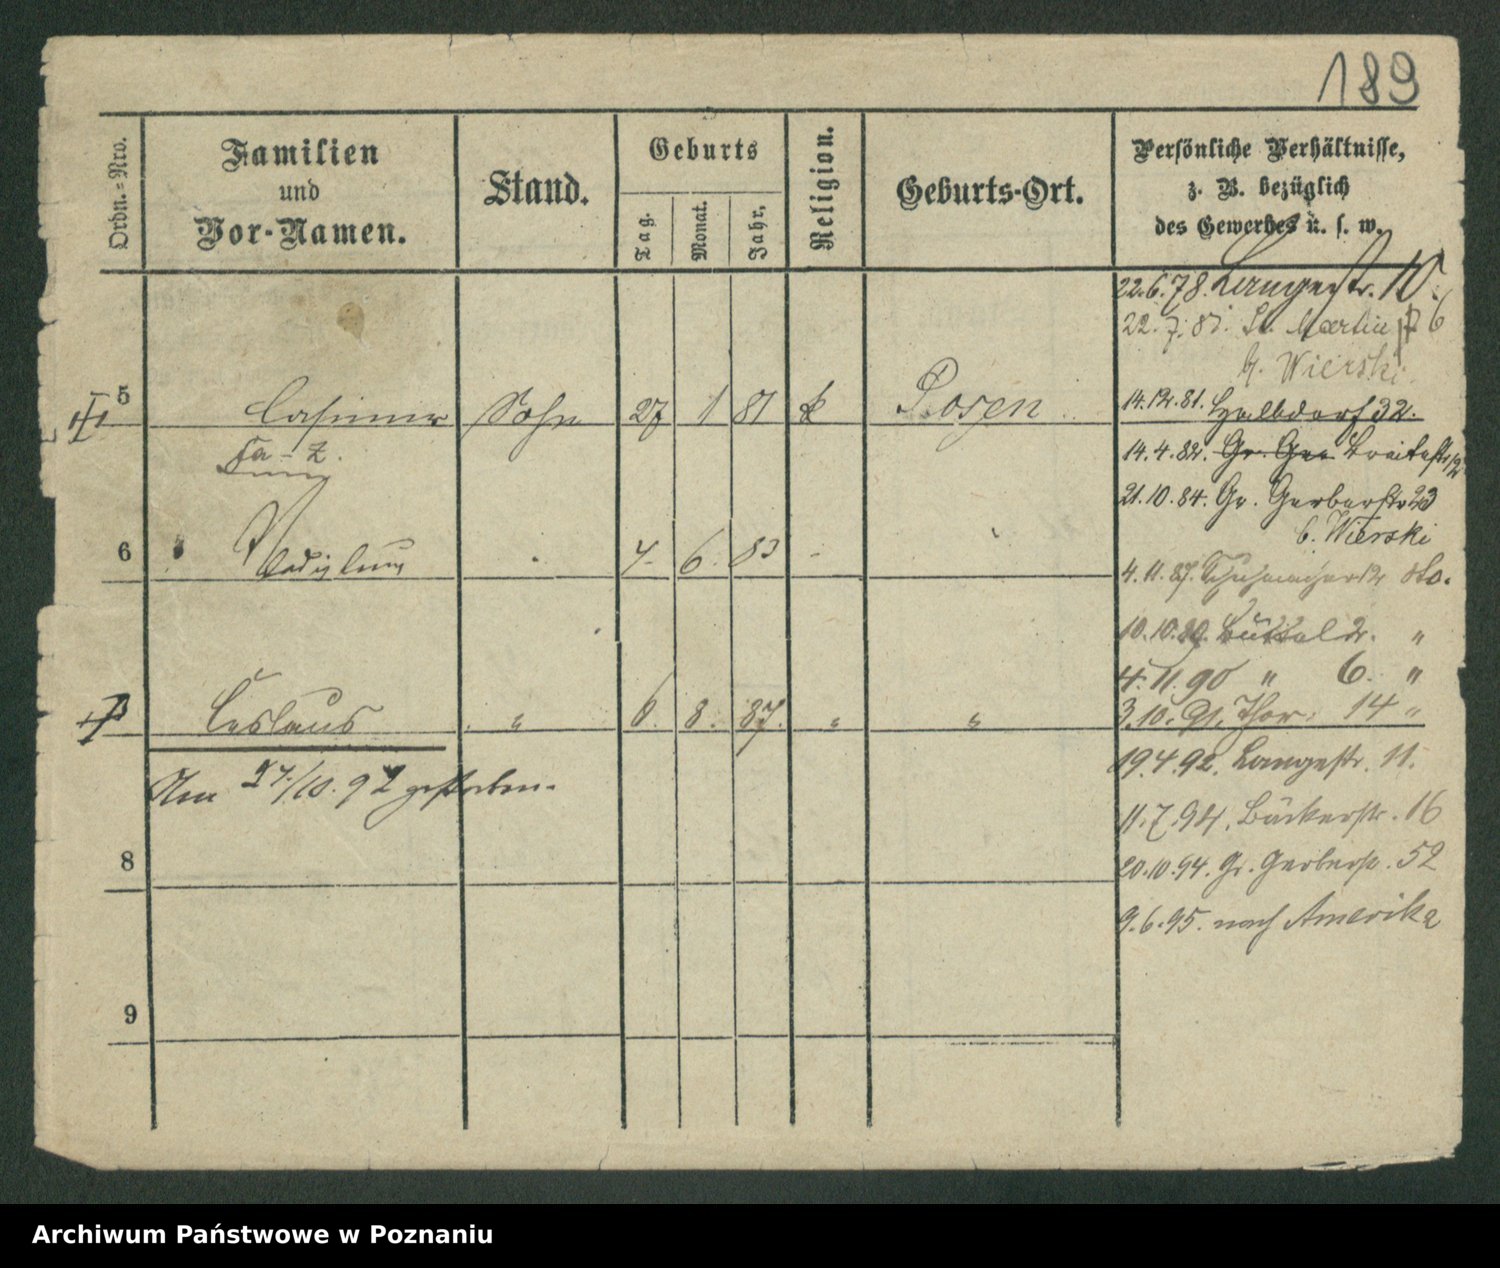 189
Ordn.=Nro.
Familien
und
Vor-Namen.
Stand.
Geburts
Tag.
Monat.
Jahr.
Religion.
Geburts-Ort.
Persönliche Verhältnisse,
z. B. bezüglich
des Gewerbes u. s. w.
22.6.78. Langestr. 10.
22.7.81. St. Martin 76
b. Wierski
5 Casimir Sohn 27 1 81 k Posen
14.12.81. Halbdorf 32.
14.4.82. Gr. Ger Breitestr 12
21.10.84. Gr. Gerberstr 23
b. Wierski
6 Wladislaus 7. 6. 83
4.11.87. Schuhmacherstr
10.10.89. Büttel 2. "
4.11.90 " 6. "
Ceslaus " 6. 8. 87. " "
3.10.91. Thor. 14 "
Am 27./10.92 gestorben.
19.4.92. Langestr. 11.
11.7.94. Bäckerstr. 16
8
20.10.94. Gr. Gerberstr. 52
9.6.95. nach Amerika
9
Archiwum Państwowe w Poznaniu